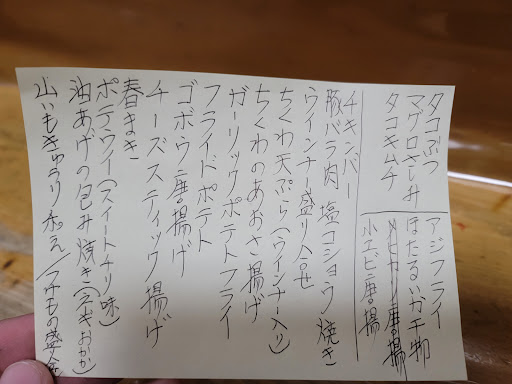 タコぶつ
マグロさしみ
タコキムチ
アジフライ
ほたるいか干物
メヒカリ唐揚
小エビ唐揚
チキンバー
豚バラ肉 塩コショウ焼き
ウインナー盛り合せ
ちくわ天ぷら(ウインナー入り)
ちくわのあおさ揚げ
ガーリックポテトフライ
フライドポテト
ゴボウ唐揚げ
チーズスティック揚げ
春まき
ポテウィー(スイートチリ味)
油あげの包み焼き(ネギおかか)
山いもきゅうり和え/つけもの盛合